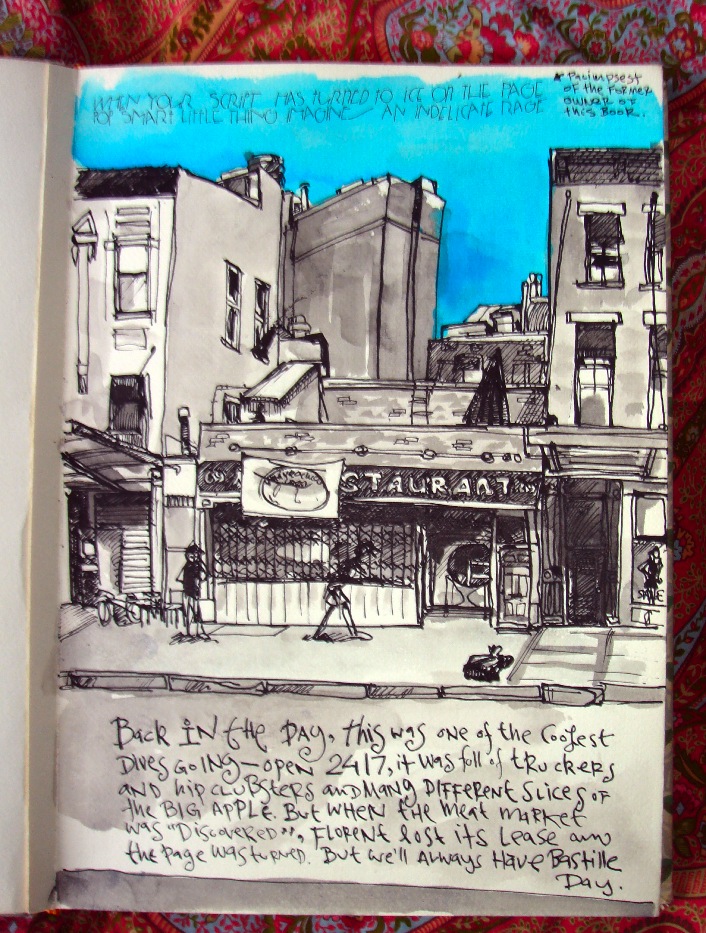 WHEN YOUR SCRIPT HAS TURNED TO ICE ON THE PAGE
POP SMART LITTLE THING IMAGINE AN INDELICATE RAGE
* Palimpsest
of the former
owner of
this book.
STAURANT
SALE
Back IN the Day, this was one of the Coolest
Dives going—open 24/7, it was full of truckers
AND hip clubsters and MANy DIFFERENT SLICES OF
the BIG APPLE. But WHEN the meat market
was "DISCOVERED", FLORENT lost its Lease and
the page was turned. But we'll Always Have Bastille
Day.